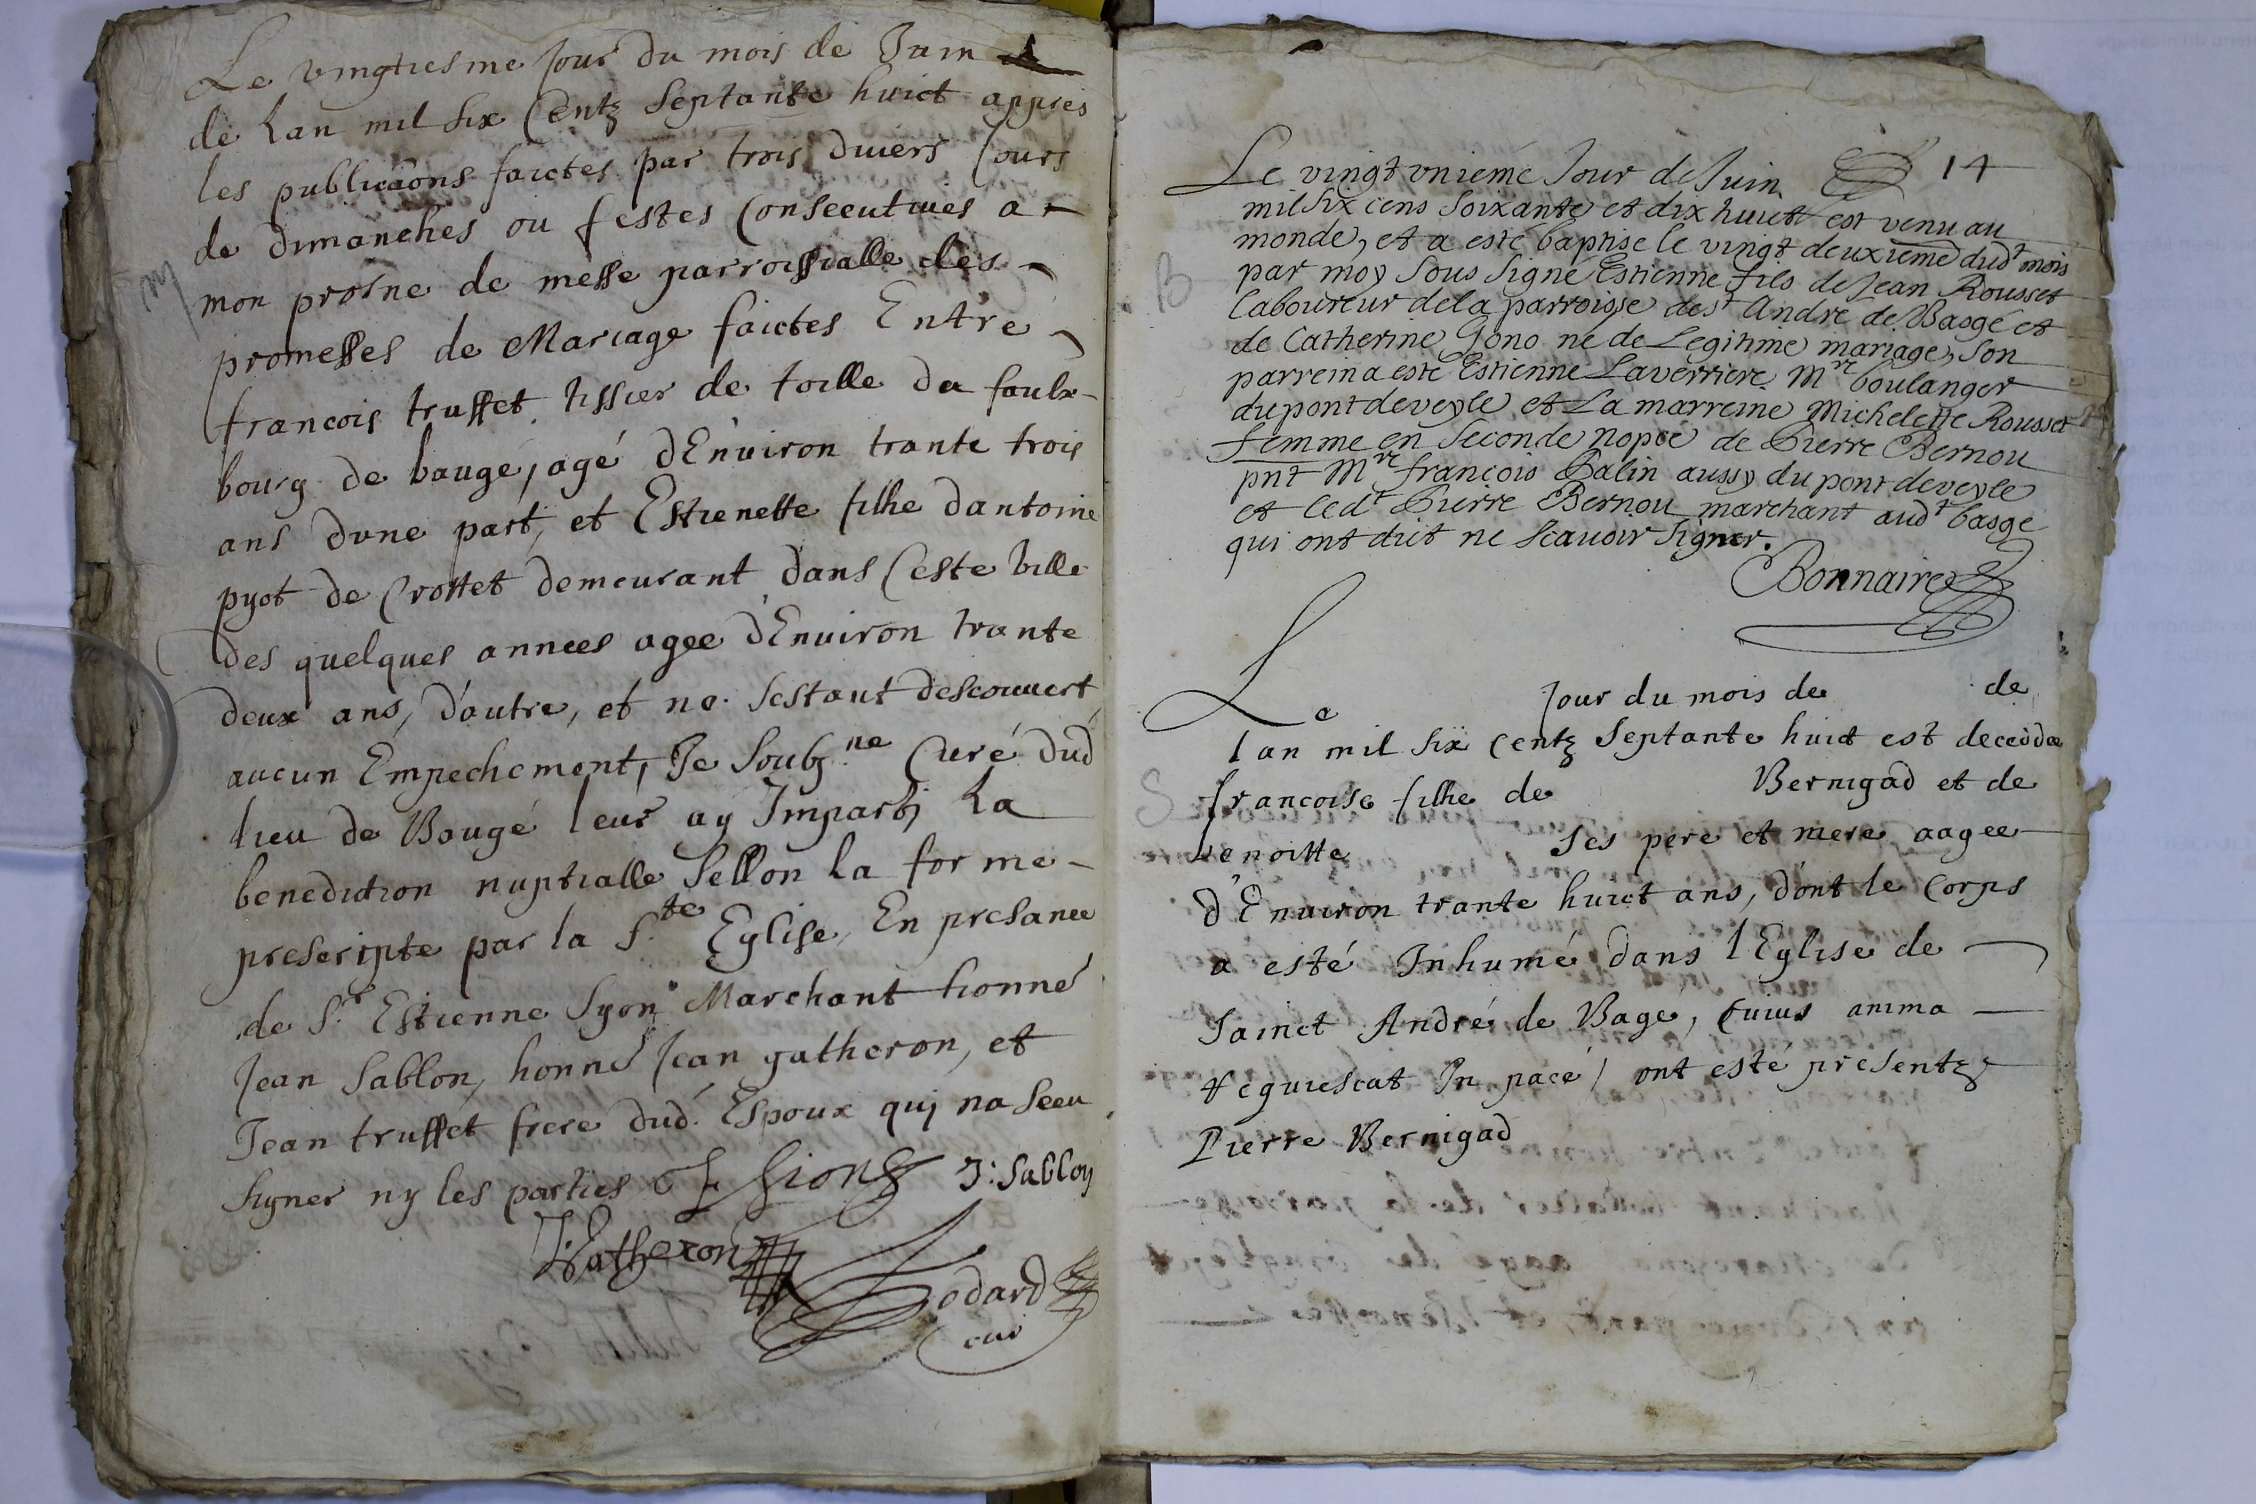 Le vingtiesme Jour du mois de Juin
de Lan mil six Centz septante huict appres
les publicaõns faictes par trois divers Jours
de dimanches ou festes Consecutives a
mon prosne de messe parroissialle des
promesses de Mariage faictes Entre
francois truffet tissier de toille du faulx-
bourg de baugé, agé dEnviron trante trois
ans dune part, et Estienette filhe dantoine
pyot de Crottet demeurant dans Ceste ville
des quelques annees agee dEnviron trante
deux ans, dautre, et ne sestant descouvert
aucun Empechement, Je soubz.ne Curé dud
lieu de Baugé leur ay Imparty La
benediction nuptialle sellon La forme
prescripte par la S.te Eglise, En presance
de S.r Estienne Syon Marchant honné
Jean Sablon, honné Jean gatheron, et
Jean truffet frere dud. Espoux qui na sceu
signer ny les parties E Sion J: Sablon
J: Gatheron
Godard
curé
M
14
Le vingt unieme Jour de Juin
mil six cens soixante et dix huictt est venu au
monde, et a esté baptise le vingt deuxieme dudt mois
par moy sous signé Estienne fils de Jean Rousset
laboureur de la parroisse de st André de Basgé et
de Catherine Gono né de Legitime mariage, son
parrein a esté Estienne Laverriere Mre boulanger
du pont de veyle, et La marreine Michelette Rousset
femme en seconde nopce de Pierre Bernou
pnt Mre françois Palin aussy du pont de veyle
et ledt Pierre Bernou marchant audt basge
qui ont dict ne scavoir signer.
Bonnaire
B
Le Jour du mois de de
lan mil six Centz septante huict est decedée
francoise filhe de Bernigad et de
benoitte ses pere et mere aagee
d'Environ trante huict ans, dont le Corps
a esté Inhumé dans l'Eglise de
Sainct André de Bagé, Cuius anima
requiescat In pace, ont esté presentz
Pierre Bernigad
S